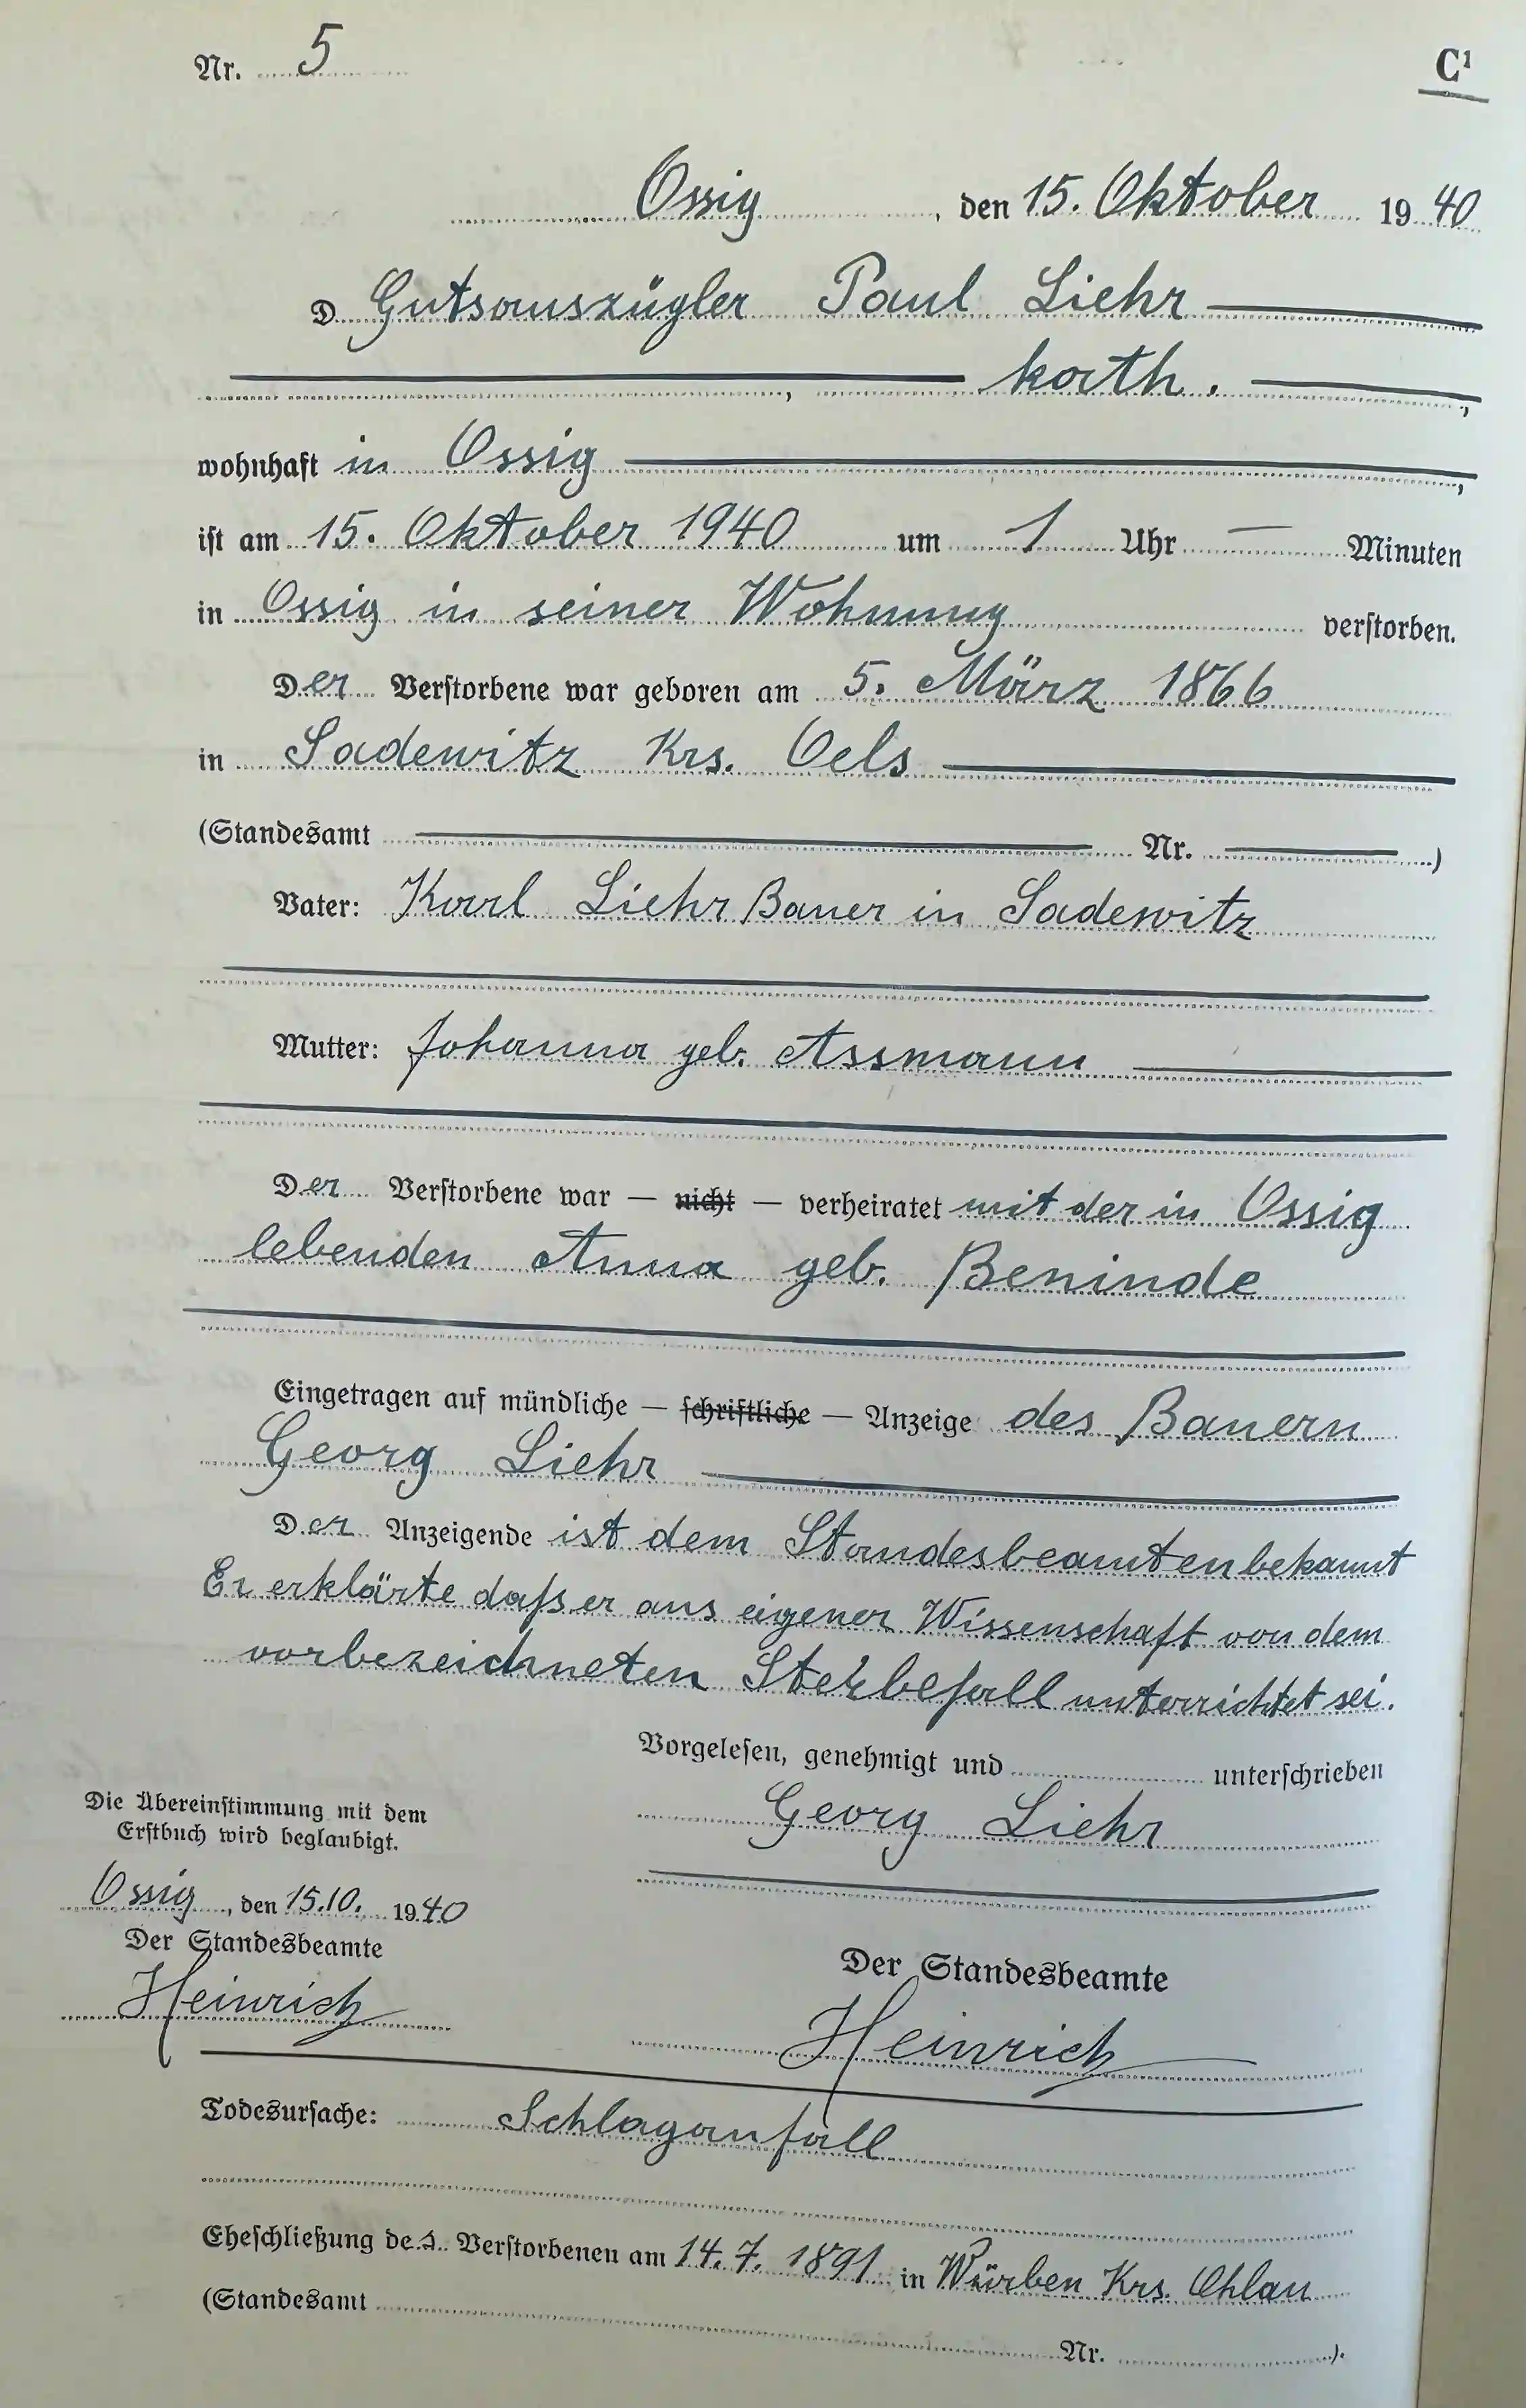 Nr. 5
C¹
Ossig, den 15. Oktober 1940
D Gutsauszügler Paul Liehr
, kath. ,
wohnhaft in Ossig ,
ist am 15. Oktober 1940 um 1 Uhr — Minuten
in Ossig in seiner Wohnung verstorben.
Der Verstorbene war geboren am 5. März 1866
in Sadewitz Krs. Oels
(Standesamt — Nr. — )
Vater: Karl Liehr Bauer in Sadewitz
Mutter: Johanna geb. Assmann
Der Verstorbene war — nicht — verheiratet mit der in Ossig
lebenden Anna geb. Beninde
Eingetragen auf mündliche — schriftliche — Anzeige des Bauern
Georg Liehr
Der Anzeigende ist dem Standesbeamten bekannt
Er erklärte daß er aus eigener Wissenschaft von dem
vorbezeichneten Sterbefall unterrichtet sei.
Vorgelesen, genehmigt und unterschrieben
Georg Liehr
Die Übereinstimmung mit dem
Erstbuch wird beglaubigt.
Ossig, den 15.10. 1940
Der Standesbeamte
Heinrich
Der Standesbeamte
Heinrich
Todesursache: Schlaganfall
Eheschließung des Verstorbenen am 14. 7. 1891 in Würben Krs. Ohlau
(Standesamt Nr. ).